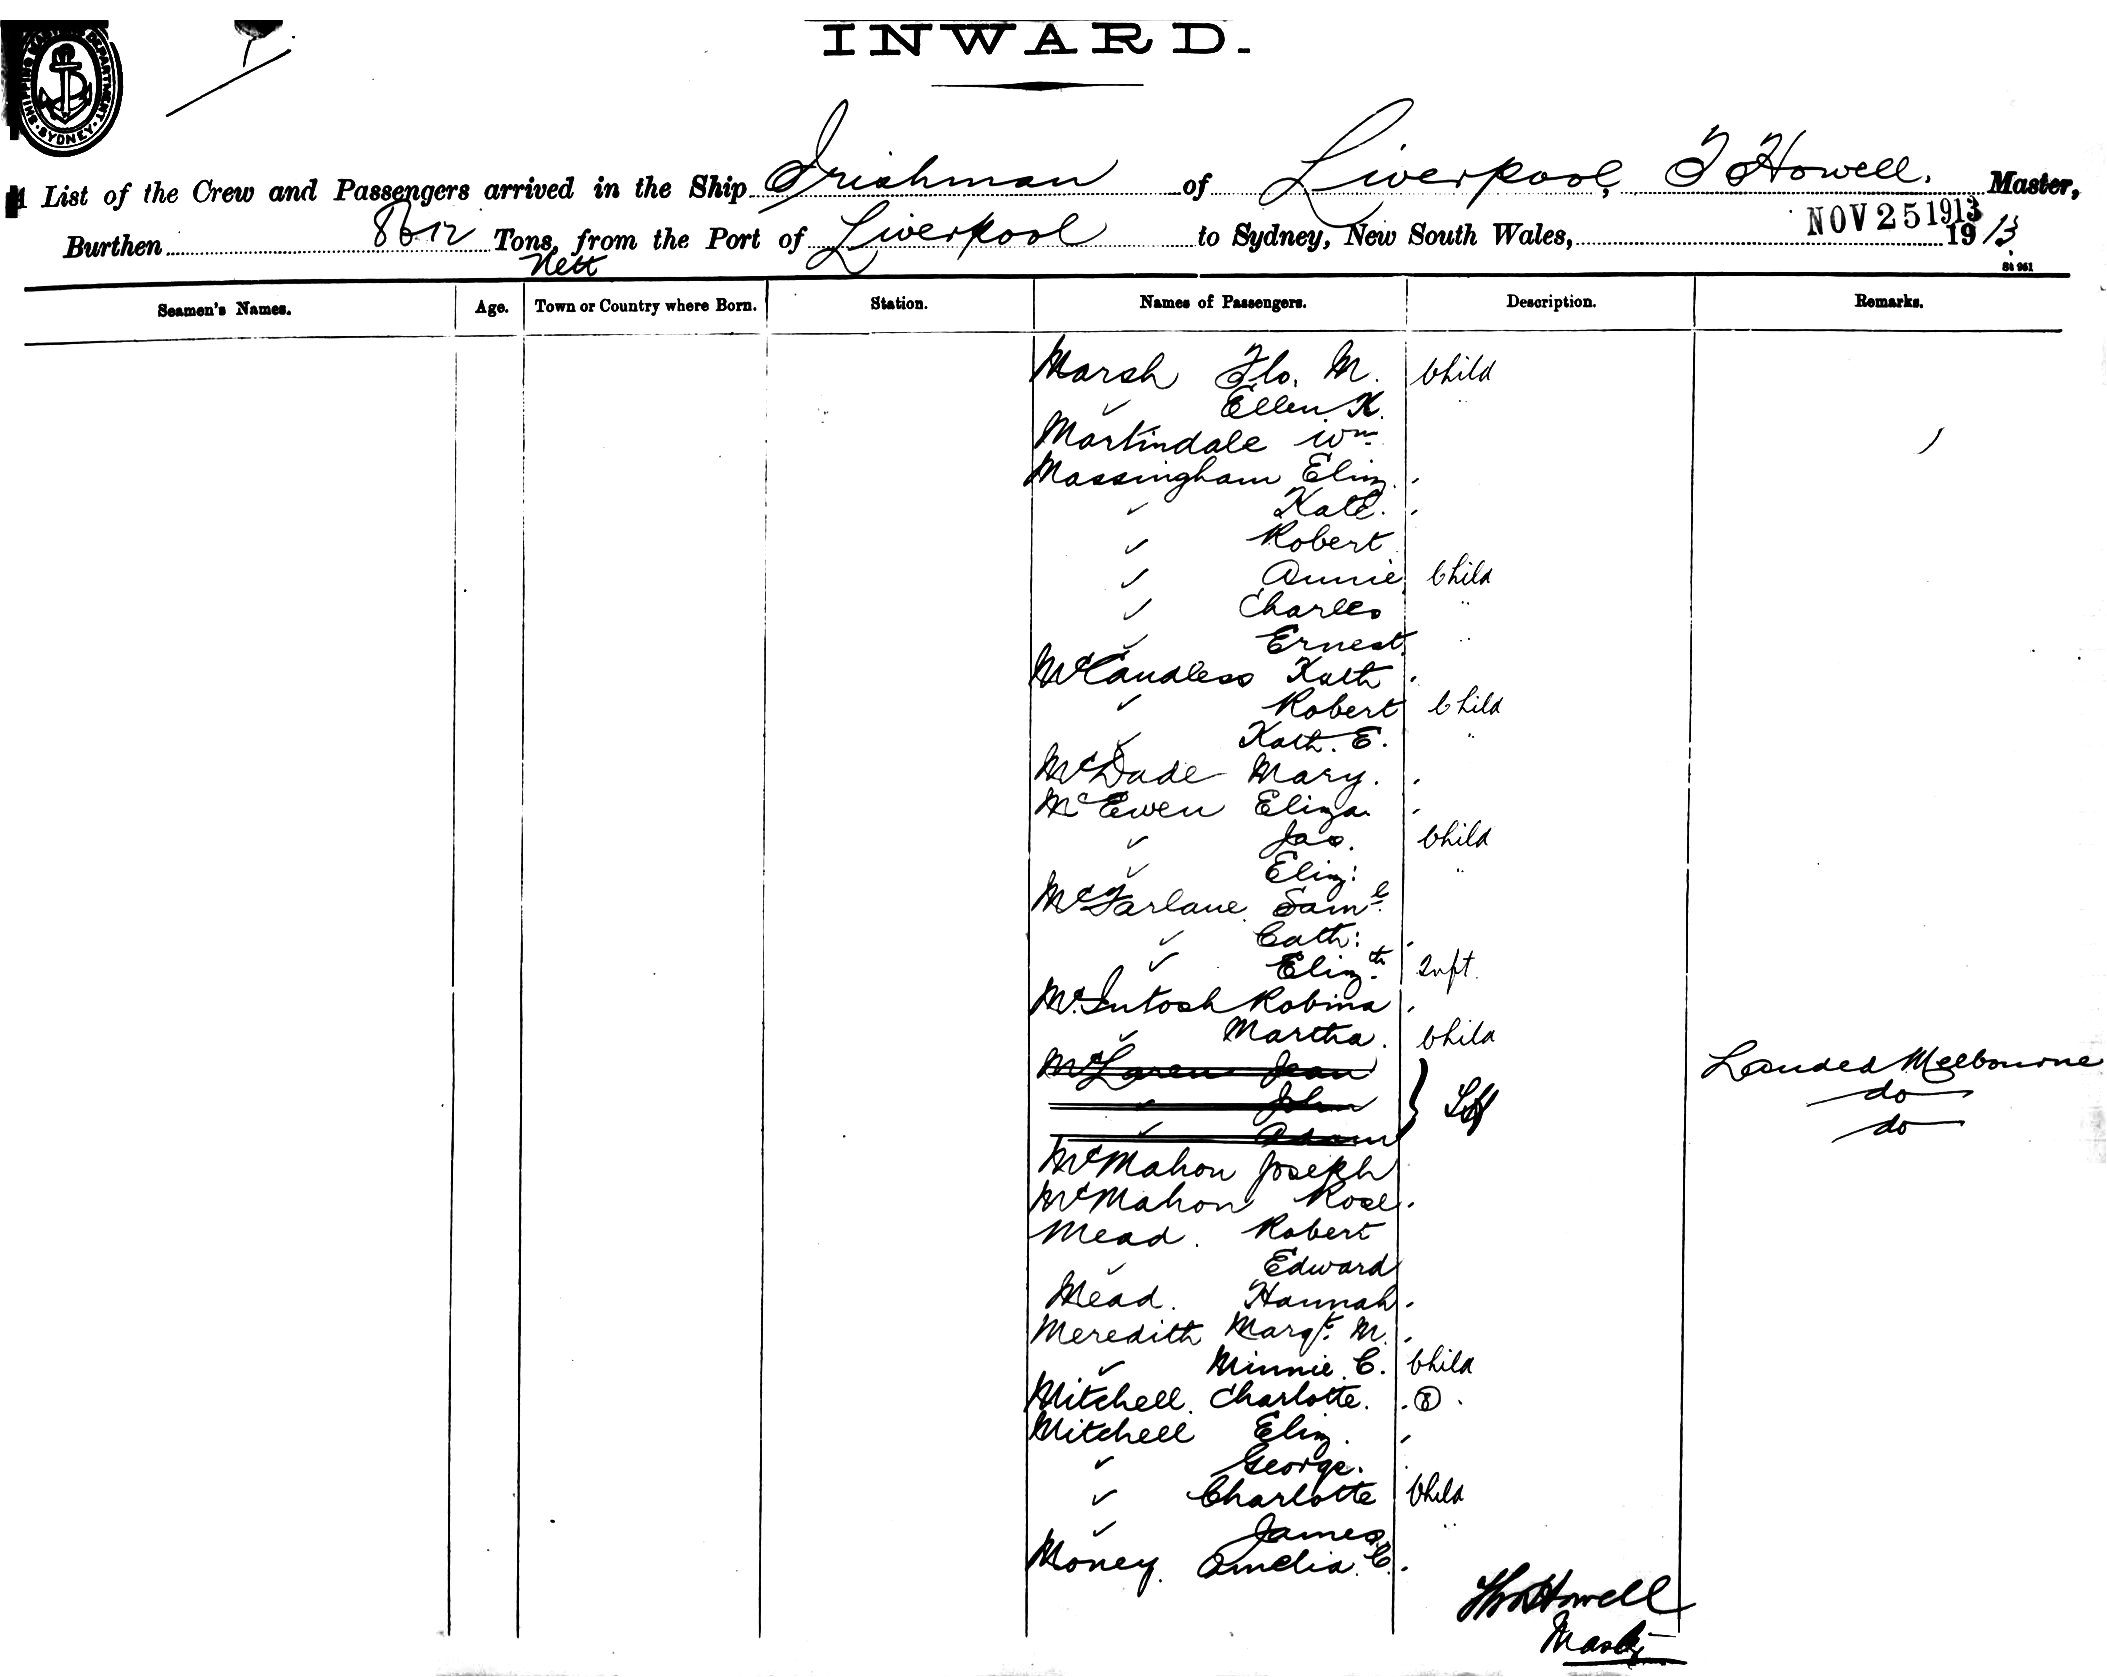 INWARD.
SHIPPING MASTER'S DEPARTMENT. SYDNEY.
List of the Crew and Passengers arrived in the Ship Irishman of Liverpool, T Howell. Master,
Burthen Tons, from the Port of Liverpool to Sydney, New South Wales, NOV 25 1913 1913
Nett
St 961
Seamen's Names. Age. Town or Country where Born. Station. Names of Passengers. Description. Remarks.
Marsh Flo. M. Child
✓ Ellen K. "
Martindale Wm
Massingham Eliz.
✓ Kate.
✓ Robert
✓ Annie Child
✓ Charles "
✓ Ernest "
McCandless Kath
✓ Robert Child
✓ Kath. E. "
McDade Mary.
McEwen Eliza.
✓ Jas. Child
✓ Eliz: "
McFarlane Saml
✓ Cath:
✓ Elizth Inft.
McIntosh Robina
✓ Martha. Child
McLaren Jean Landed Melbourne
✓ John do
✓ Adam do
McMahon Joseph
McMahon Rose.
Mead. Robert
✓ Edward
Mead. Hannah.
Meredith Margt. M.
✓ Minnie C. Child
Mitchell. Charlotte. 8
Mitchell Eliz.
✓ George.
✓ Charlotte Child
✓ James "
Money. Amelia C.
Thos Howell
Master